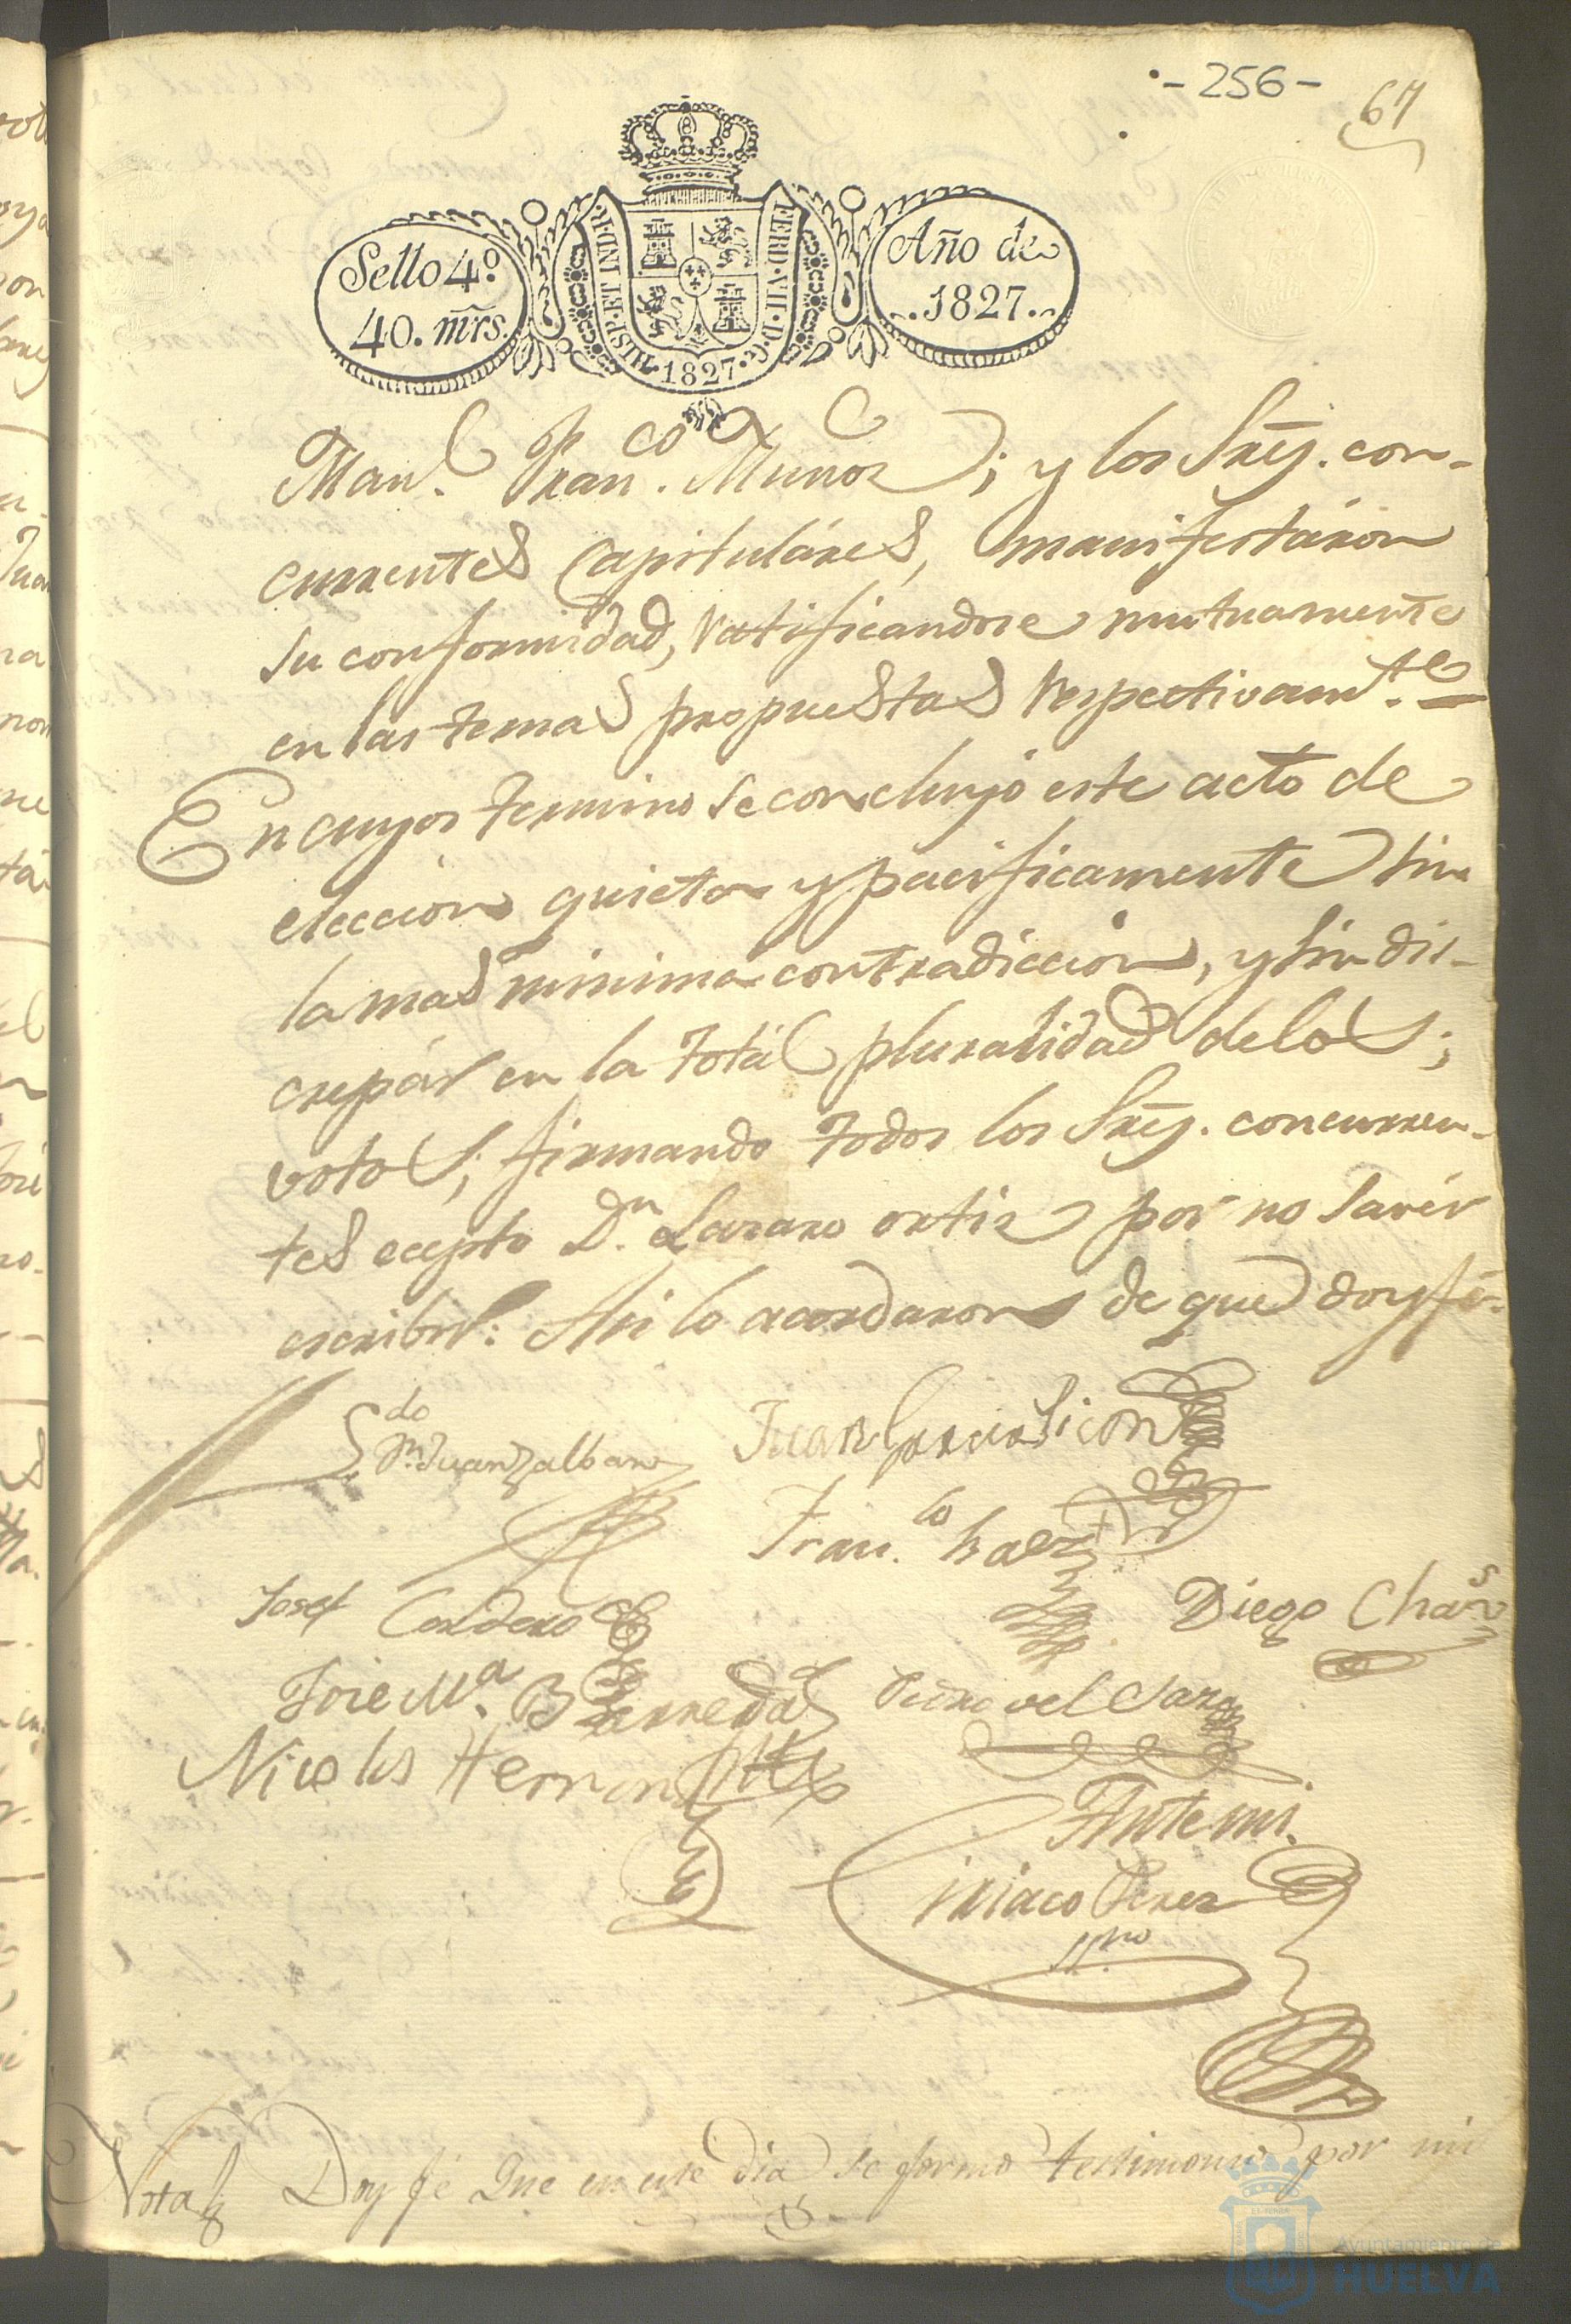 - 256 -
67
Sello 4º.
40. mrs.
HISP. ET IND. R.
FERD. VII. D. G.
. 1827 .
Año de
..1827..
Man.l Fran.co Muñoz; y los Sres. con-
currentes Capituláres, manifestáron
su conformidad, ratificandose mutuamente
en las ternas propuestas respectivam.te
En cuyos termino se concluyó este acto de
eleccion quieta y pacificamente sin
la mas minima contradiccion, y sin dis-
crepár en la totál pluralidad de los;
votos; firmando todos los Sres. concurren-
tes ecepto D.n Lazaro ortiz por no savér
escribir: Asi lo acordaron de que doy fé.
L.do D.n Juan Zalbans
Juan Garcia Sicon
Fran.co baez
Josef Cordero
Diego Cha.s
Jose M.a Barreda
Pedro del
Nicolas Hernand
Ante mi.
Ciriaco Perez
ss.no
Nota Doy fé Que en este dia se formó testimonio por mi
Ayuntamiento de
HUELVA